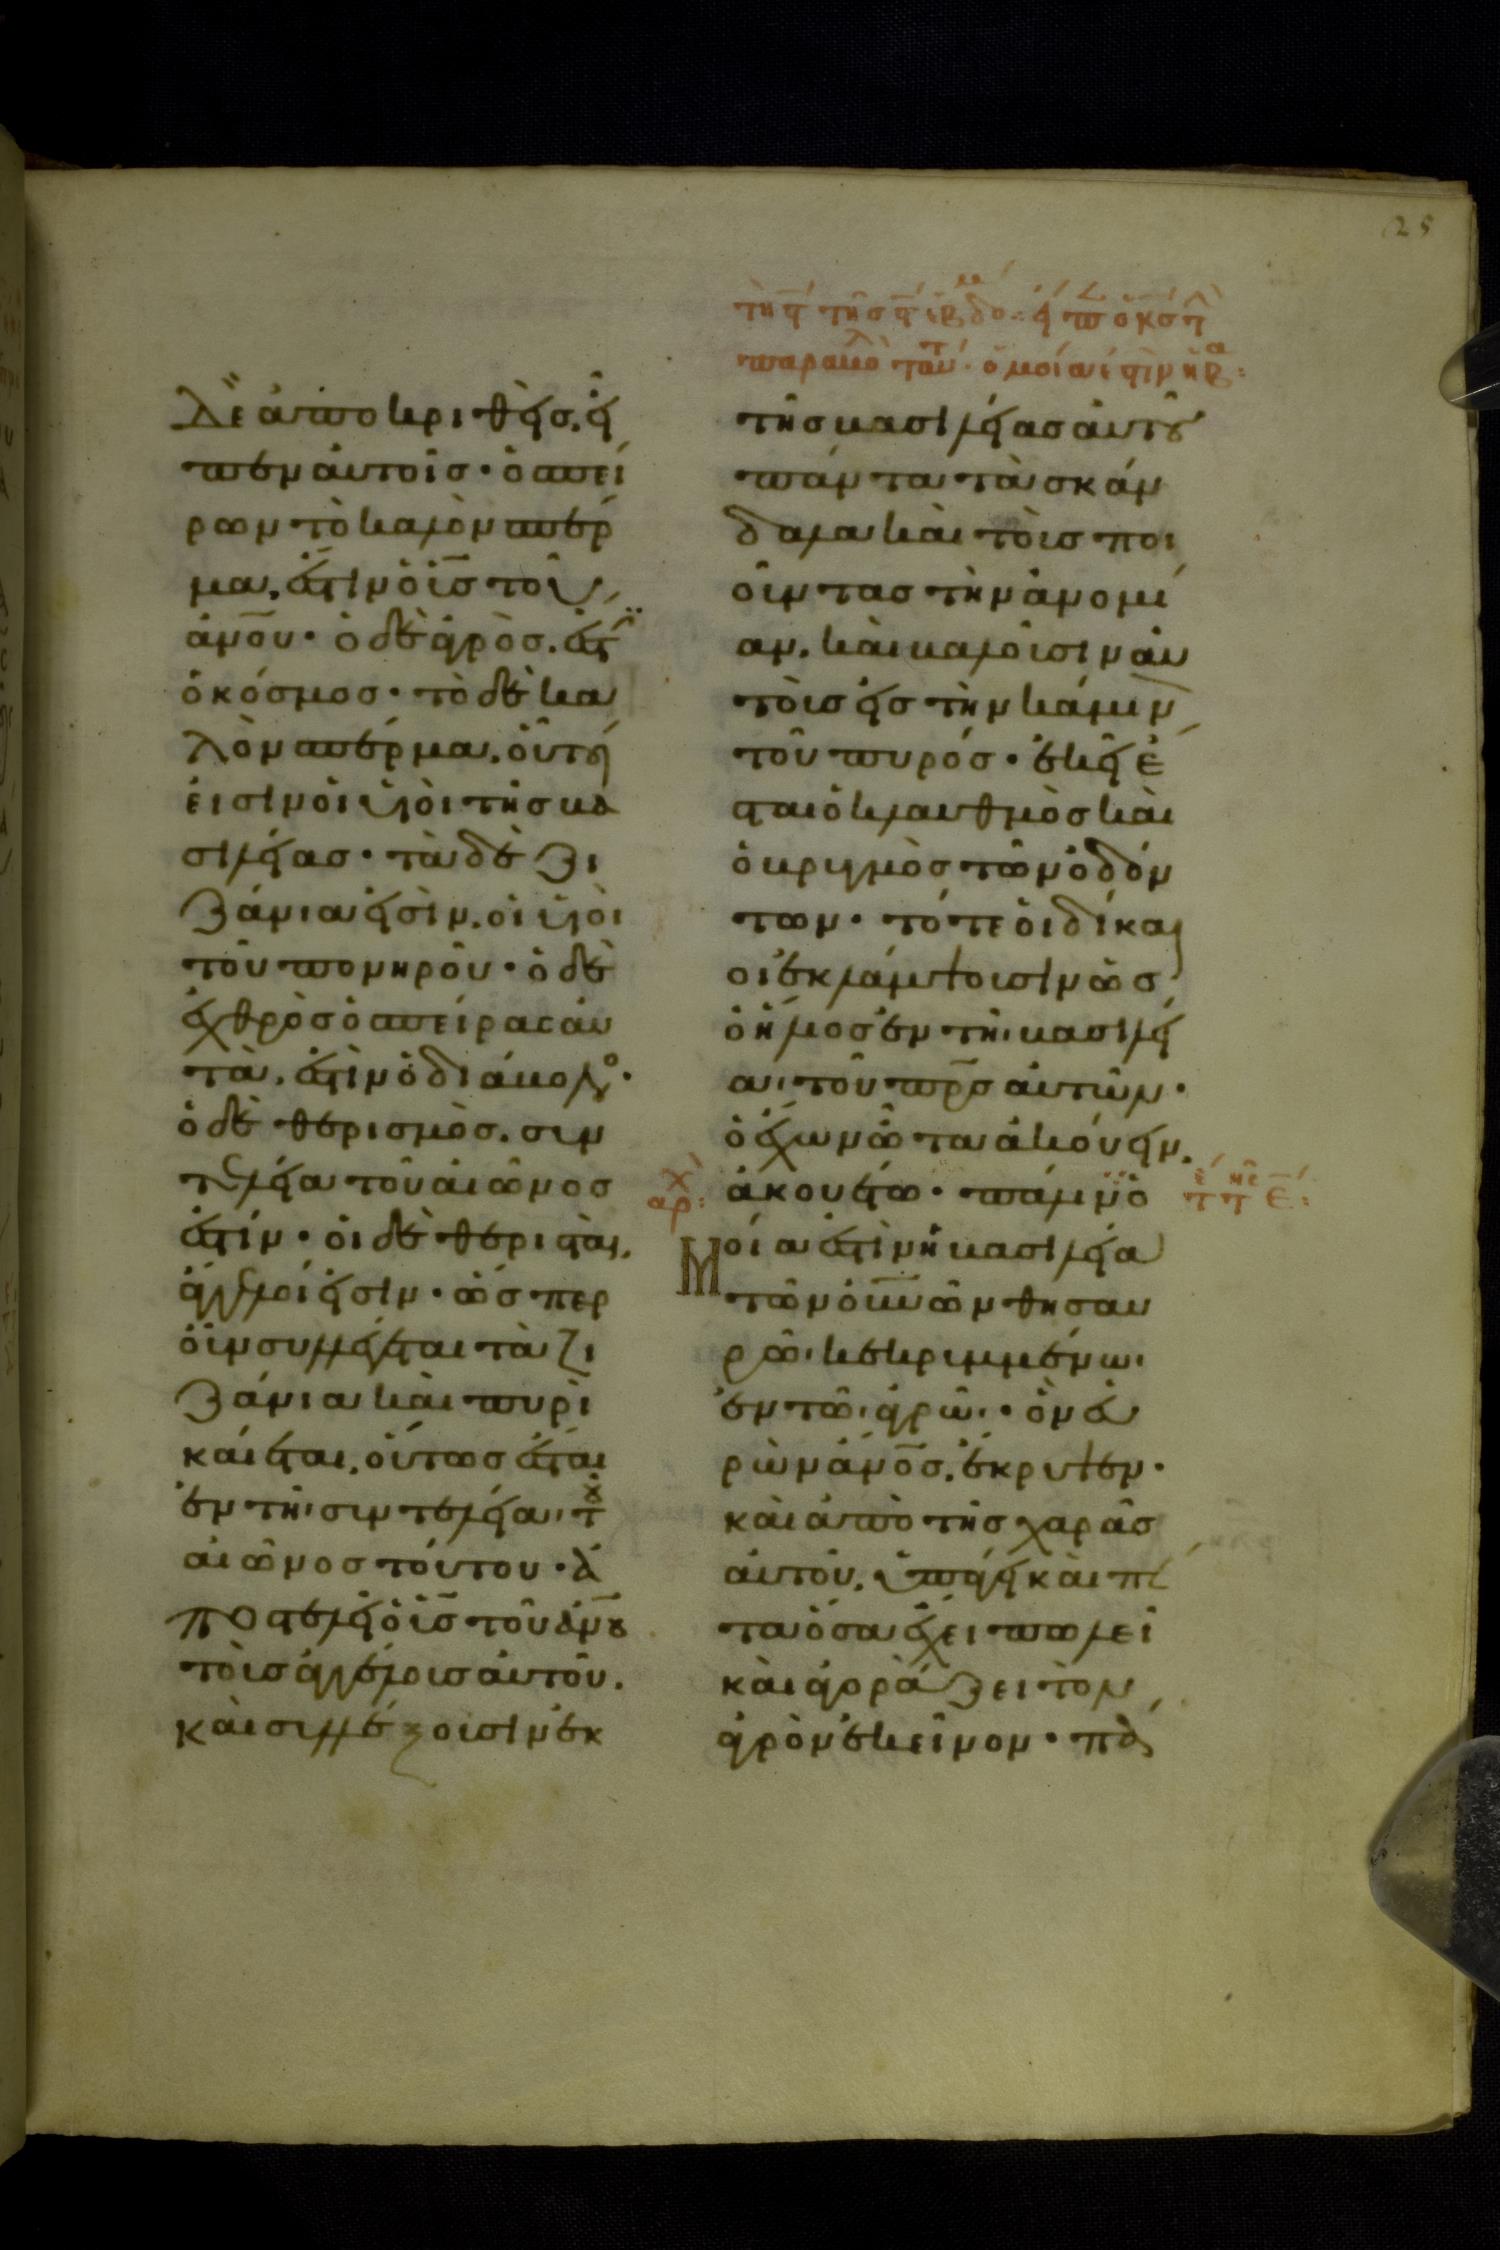 25
δὲ ἀποκριθεὶς. εἶ
πεν αὐτοῖς· ὁ σπεί
ρων τὸ καλὸν σπέρ
μα. ἐστὶν ὁ υἱ̅ς τοῦ
ἀν̅ου· ὁ δὲ ἀγρὸς. ἐστ
ὁ κόσμος· τὸ δὲ κα
λὸν σπέρμα. οὗτοί
εἰσιν οἱ υἱοὶ τῆς βα
σιλείας· τὰ δὲ ζι
ζάνια εἰσὶν. οἱ υἱοὶ
τοῦ πονηροῦ· ὁ δὲ
ἐχθρὸς ὁ σπείρας αὐ
τὰ. ἐστὶν ὁ διάβολο·
ὁ δὲ θερισμὸς. συν
τέλεια τοῦ αἰῶνος
ἐστίν· οἱ δὲ θερισταὶ.
ἄγγελοί εἰσιν· ὥσπερ
οὖν συλλέγεται τὰ ζι
ζάνια καὶ πυρὶ
καίεται. οὕτως ἔσται
ἐν τῆι συντελείαι τοῦ
αἰῶνος τούτου· ἀ
ποστελεῖ ὁ υἱ̅ς τοῦ ἀν̅ου
τοῖς ἀγγέλοις αὐτοῦ.
καὶ συλλέξουσιν ἐκ
τῆς βασιλείας αὐτοῦ
πάντα τὰ σκάν
δαλα καὶ τοὺς ποι
οῦντας τὴν ἀνομί
αν. καὶ βαλοῦσιν αὐ
τοὺς εἰς τὴν κάμιν
τοῦ πυρός· ἐκεῖ ἔ
σται ὁ κλαυθμὸς καὶ
ὁ βρυγμὸς τῶν ὀδόν
των· τότε οἱ δίκαι
οι ἐκλάμψουσιν ὡς
ὁ ἥλιος ἐν τῆι βασιλεί
αι τοῦ πρ̅ς αὐτῶν·
ὁ ἔχων ὦτα ἀκούειν.
ἀκουέτω· πάλιν ὁ
μοία ἐστὶν ἡ βασιλεία
τῶν οὐ̅νῶν θησαυ
ρῶι κεκρυμμένωι
ἐν τῶι ἀγρῶι· ὃν εὑ
ρὼν ἄν̅ος. ἔκρυψεν·
καὶ ἀπὸ τῆς χαρᾶς
αὐτοῦ. ὑπάγει καὶ πά
τα ὅσα ἔχει πωλεῖ
καὶ ἀγοράζει τὸν
ἀγρὸν ἐκεῖνον· πά